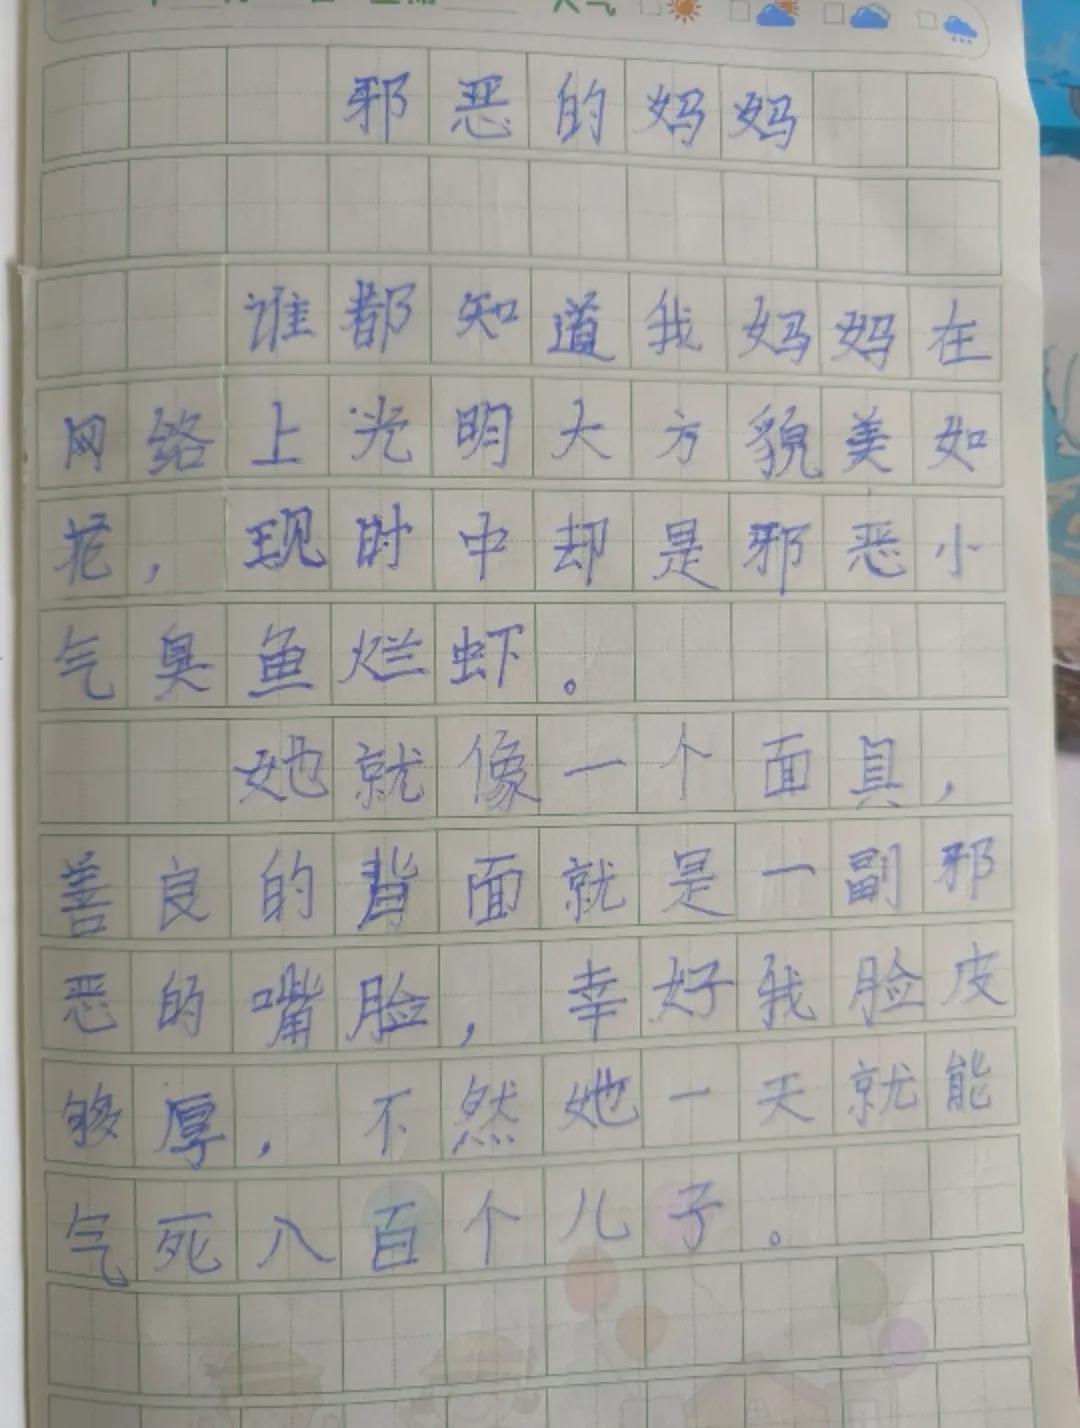 邪恶的妈妈
谁都知道我妈妈在
网络上光明大方貌美如
花，现时中却是邪恶小
气臭鱼烂虾。
她就像一个面具，
善良的背面就是一副邪
恶的嘴脸，幸好我脸皮
够厚，不然她一天就能
气死八百个儿子。